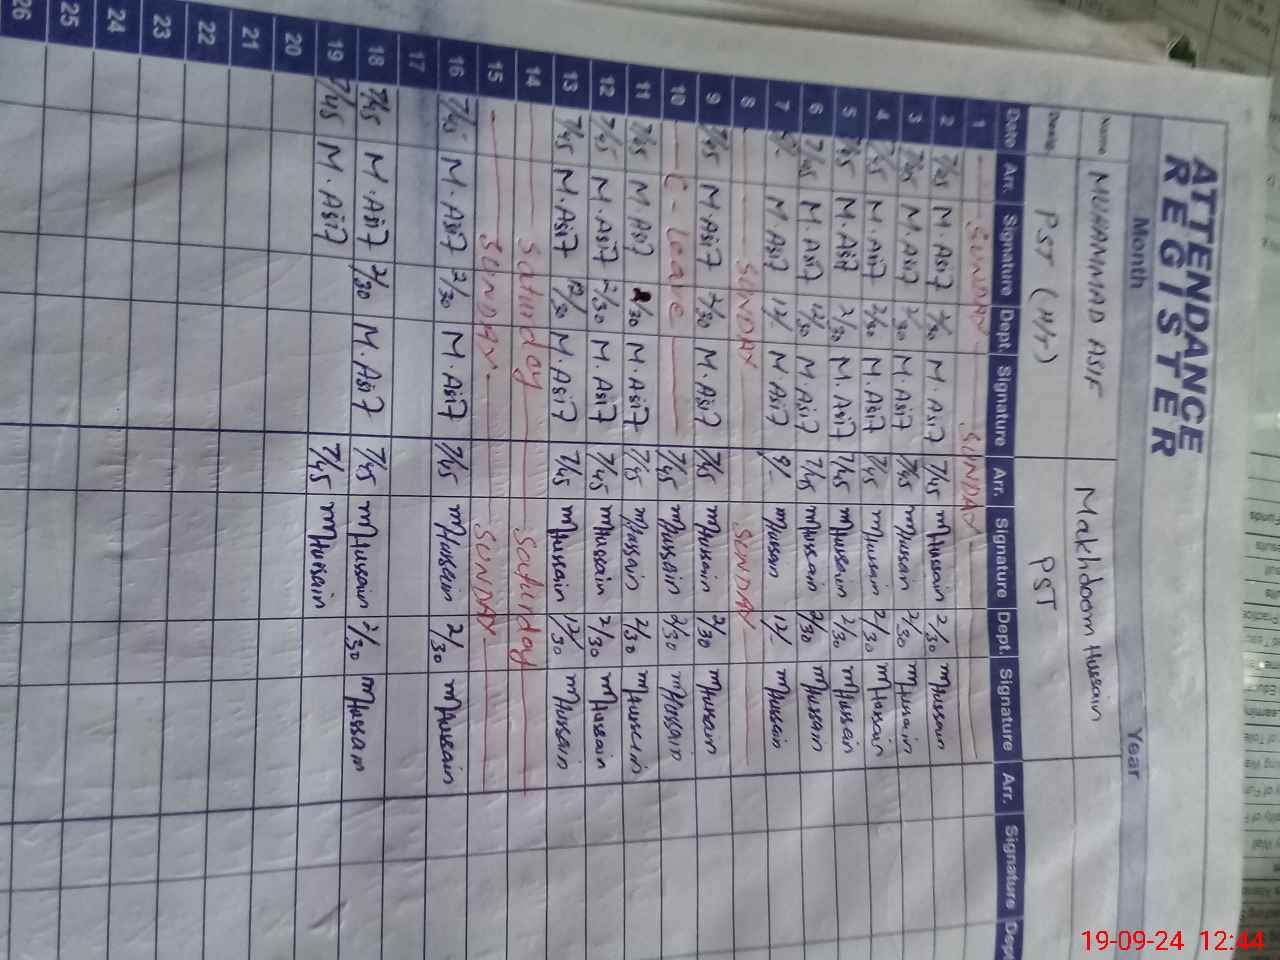 ATTENDANCE
REGISTER
Month Year
Name MUHAMMAD ASIF Makhdoom Hussain
PST (H/T) PST
Date Arr. Signature Dept. Signature Arr. Signature Dept. Signature Arr. Signature Dept
1 SUNDAY SUNDAY
2 7/45 M.Asif 2/30 M.Asif 7/45 mHussain 2/30 mHussain
3 7/45 M.Asif 2/30 M.Asif 7/45 mHussain 2/30 mHussain
4 7/45 M.Asif 2/30 M.Asif 7/45 mHussain 2/30 mHussain
5 7/45 M.Asif 2/30 M.Asif 7/45 mHussain 2/30 mHussain
6 7/45 M.Asif 12/30 M.Asif 7/45 mHussain mHussain
7 M Asif 12/- M Asif 9/- mHussain 12/- mHussain
8 SUNDAY SUNDAY
9 7/45 M.Asif 2/30 M.Asif 7/45 mHussain 2/30 mHussain
10 C-leave 7/45 mHussain 2/30 mHussain
11 7/45 M.Asif 2/30 M.Asif 7/45 mHussain 2/30 mHussain
12 7/45 M.Asif 2/30 M.Asif 7/45 mHussain 2/30 mHussain
13 7/45 M.Asif 12/30 M.Asif 7/45 mHussain 12/30 mHussain
14 Saturday Saturday
15 SUNDAY SUNDAY
16 7/45 M.Asif 2/30 M.Asif 7/45 mHussain 2/30 mHussain
17
18 7/45 M.Asif 2/30 M.Asif 7/45 mHussain 2/30 mHussain
19 7/45 M.Asif 7/45 mHussain
20
21
22
23
24
25
26
19-09-24 12:44